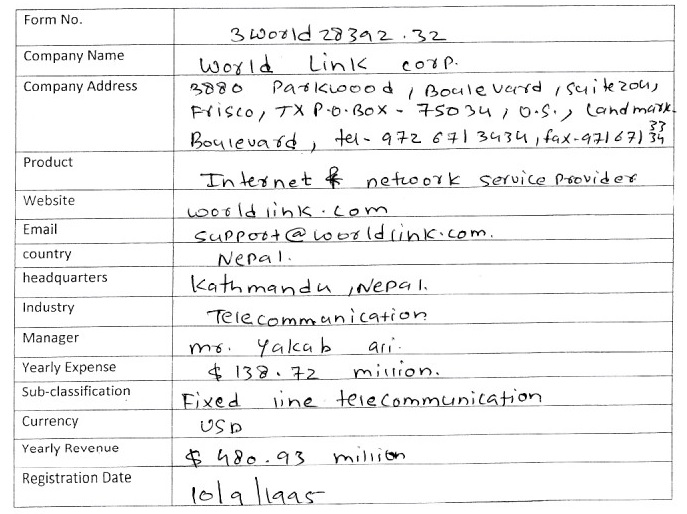 Form No. 3world28392.32
Company Name World Link corp.
Company Address 3880 Parkwood, Boulevard, suite 204,
Frisco, TX P.O.BOX - 75034, U.S., Landmark-
Boulevard, tel- 972 671 3434, fax-971671 33
34
Product
Internet & network service Provider
Website worldlink.com
Email support@worldlink.com.
country Nepal.
headquarters Kathmandu, Nepal.
Industry Telecommunication
Manager mr. Yakab ari.
Yearly Expense $ 138.72 million.
Sub-classification Fixed line telecommunication
Currency USD
Yearly Revenue $ 480.93 million
Registration Date 10/9/1995